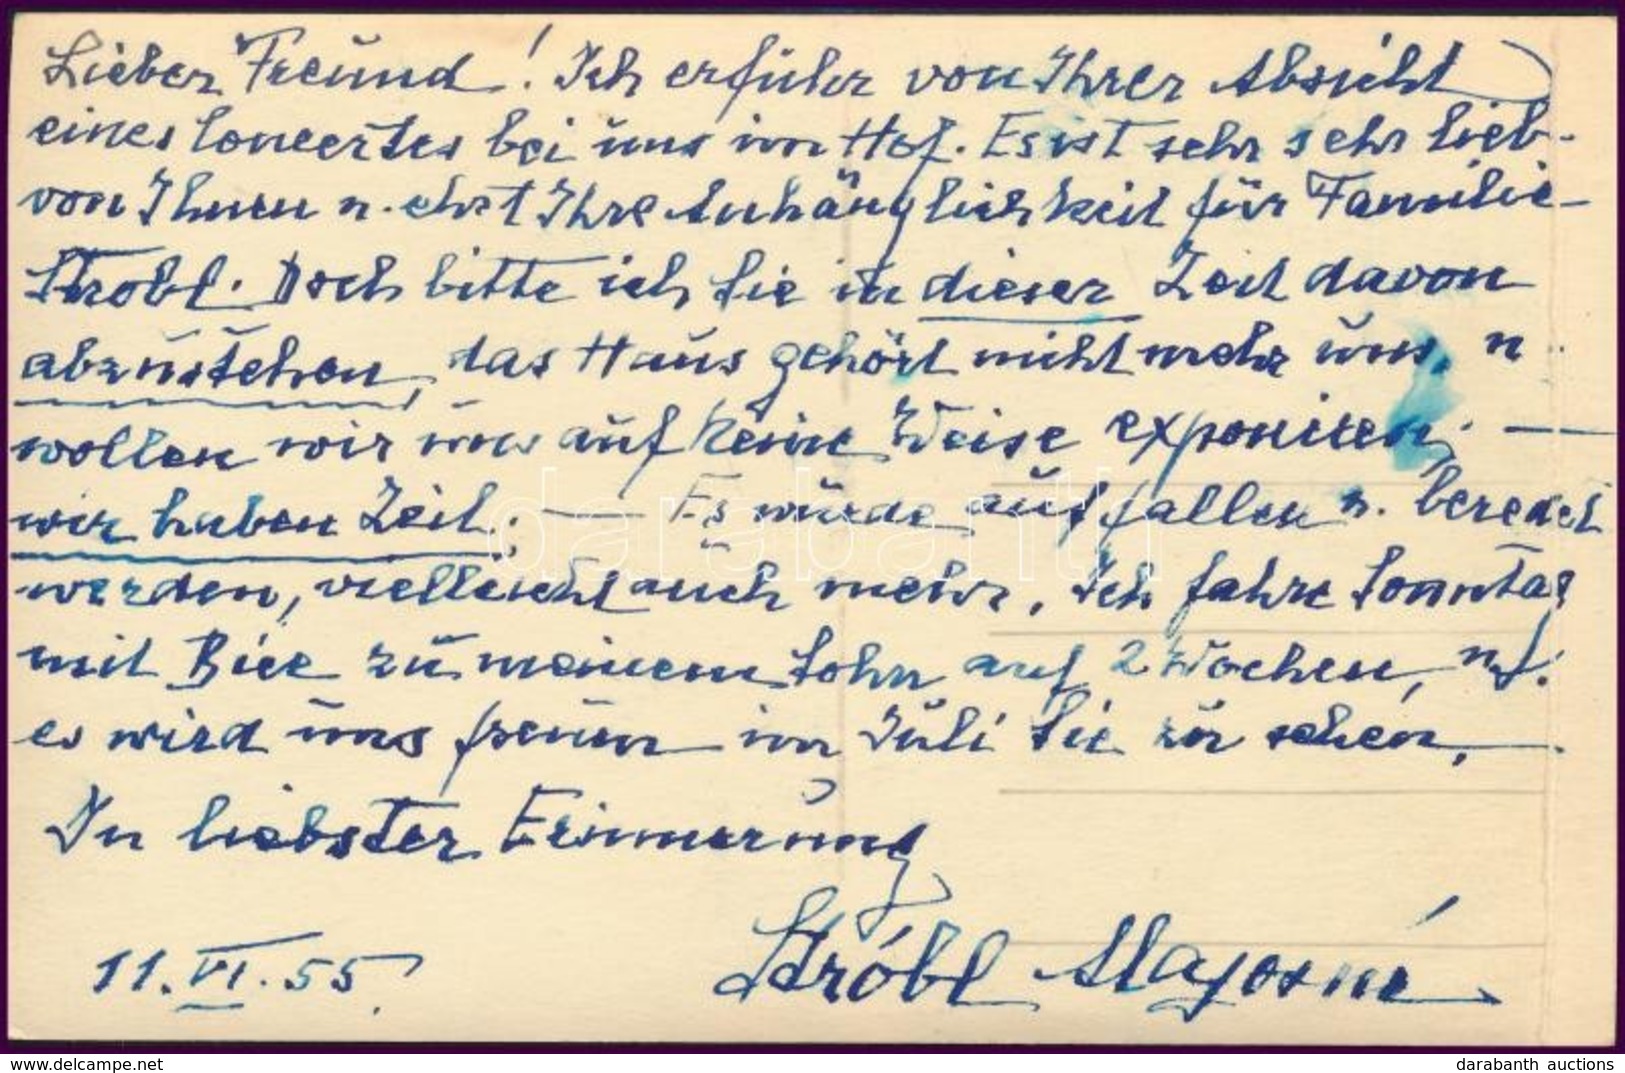 Lieber Freund! Ich erfuhr von Ihrer Absicht
eines Concertes bei uns im Hof. Es ist sehr sehr lieb
von Ihnen u. ehrt Ihre Anhänglichkeit für Familie
Strobl. Doch bitte ich Sie in dieser Zeit davon
abzustehen, das Haus gehört nicht mehr uns, u.
wollen wir uns auf keine Weise exponiren. —
wir haben Zeit. — Es würde auffallen u. beredet
werden, vielleicht auch mehr. Ich fahre Sonntag
mit Bice zu meinem Sohn auf 2 Wochen,
es wird uns freuen im Juli Sie zu sehen.
In liebster Erinnerung
Stróbl Alajosné
11. VI. 55.
darabanth
darabanth auctions
https://www.delcampe.net